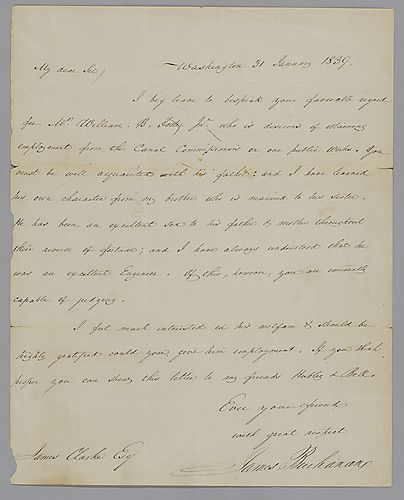 My dear Sir,
Washington 31 January 1839.
I beg leave to bespeak your favorable regard
for Mr William. B. Foster Jr. who is desirous of obtaining
employment from the Canal Commissioners on our public Works. You
must be well acquainted with his father; and I have learned
his own character from my brother who is married to his Sister.
He has been an excellent son to his father & mother throughout
their reverse of fortune; and I have always understood that he
was an excellent Engineer. Of this, however, you are eminently
capable of judging.
I feel much interested in his welfare & should be
highly gratified could you give him employment. If you think
proper you can show this letter to my friends Hubley & Bell.
Ever your friend
with great respect
James Buchanan
James Clarke Esq